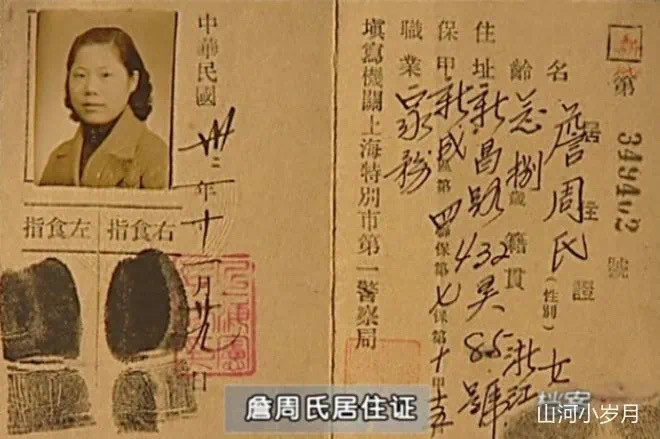 第 號
居住證
名 詹周氏 (性別) 女
齡 捌 歲 籍貫 浙江
住址 新昌路432弄85號
保甲 新成區第四聯保第七保第十甲
職業 家務
填寫機關上海特別市第一警察局
中華民國 卅二年十一月廿九日
右食指 左食指
詹周氏居住证
档案
山河小岁月